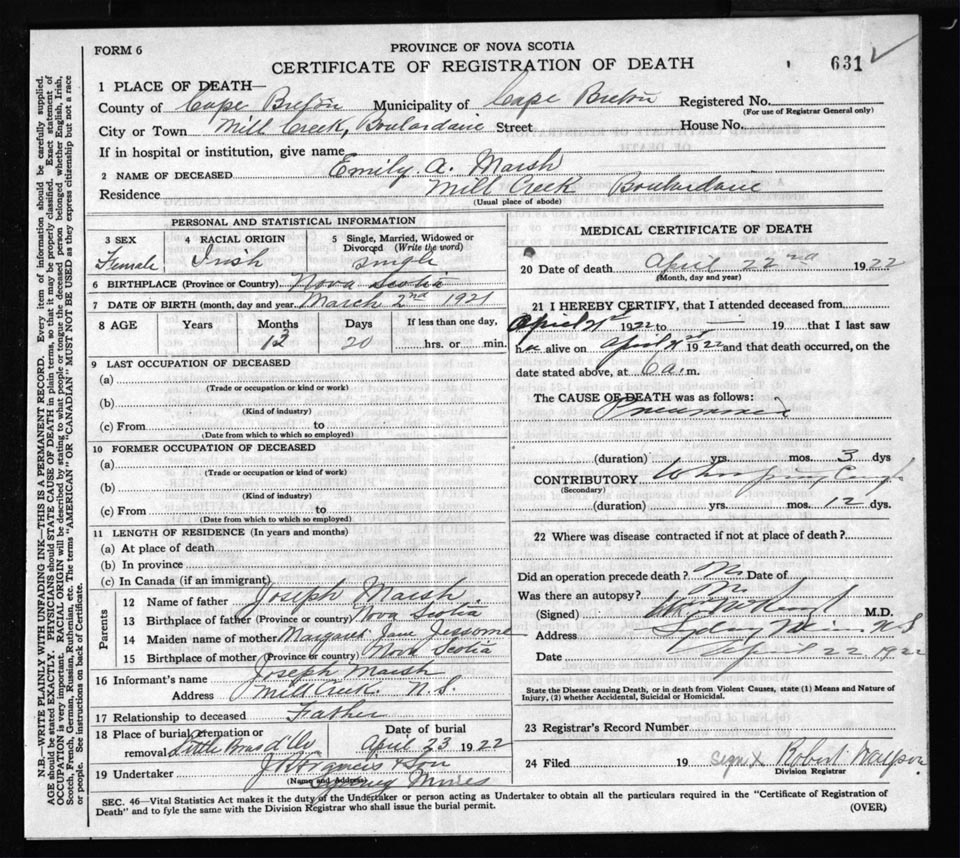 FORM 6
PROVINCE OF NOVA SCOTIA
CERTIFICATE OF REGISTRATION OF DEATH
631
1 PLACE OF DEATH—
County of Cape Breton Municipality of Cape Breton Registered No.
(For use of Registrar General only)
City or Town Mill Creek, Boulardarie Street House No.
If in hospital or institution, give name
2 NAME OF DECEASED Emily A. Marsh
Residence Mill Creek Boulardarie
(Usual place of abode)
PERSONAL AND STATISTICAL INFORMATION
3 SEX Female
4 RACIAL ORIGIN Irish
5 Single, Married, Widowed or Divorced (Write the word) single
6 BIRTHPLACE (Province or Country) Nova Scotia
7 DATE OF BIRTH (month, day and year) March 2nd 1921
8 AGE Years Months Days If less than one day,
12 20 hrs. or min.
9 LAST OCCUPATION OF DECEASED
(a)
(Trade or occupation or kind or work)
(b)
(Kind of industry)
(c) From to
(Date from which to which so employed)
10 FORMER OCCUPATION OF DECEASED
(a)
(Trade or occupation or kind of work)
(b)
(Kind of industry)
(c) From to
(Date from which to which so employed)
11 LENGTH OF RESIDENCE (In years and months)
(a) At place of death
(b) In province
(c) In Canada (if an immigrant)
Parents
12 Name of father Joseph Marsh
13 Birthplace of father (Province or country) Nova Scotia
14 Maiden name of mother Margaret Jane Jessome
15 Birthplace of mother (Province or country) Nova Scotia
16 Informant's name Joseph Marsh
Address Mill Creek N.S.
17 Relationship to deceased Father
18 Place of burial, cremation or removal Little Bras d'Or
Date of burial April 23 1922
19 Undertaker J B Francis & Son
(Name and Address)
Sydney Mines
MEDICAL CERTIFICATE OF DEATH
20 Date of death April 22nd 1922
(Month, day and year)
21 I HEREBY CERTIFY, that I attended deceased from
April 21st 1922 to — 19 that I last saw
her alive on April 21st 1922 and that death occurred, on the
date stated above, at 6 a. m.
The CAUSE OF DEATH was as follows:
Pneumonia
(duration) yrs. mos. 3 dys
CONTRIBUTORY Whooping Cough
(Secondary)
(duration) yrs. mos. 12 dys.
22 Where was disease contracted if not at place of death?
Did an operation precede death? No Date of
Was there an autopsy? No
(Signed) M.D.
Address Sydney Mines N S
Date April 22 1922
State the Disease causing Death, or in death from Violent Causes, state (1) Means and Nature of
Injury, (2) whether Accidental, Suicidal or Homicidal.
23 Registrar's Record Number
24 Filed 19 sign X Robert
Division Registrar
SEC. 46—Vital Statistics Act makes it the duty of the Undertaker or person acting as Undertaker to obtain all the particulars required in the "Certificate of Registration of
Death" and to fyle the same with the Division Registrar who shall issue the burial permit.
(OVER)
N.B.—WRITE PLAINLY WITH UNFADING INK—THIS IS A PERMANENT RECORD. Every item of information should be carefully supplied.
AGE should be stated EXACTLY. PHYSICIANS should STATE CAUSE OF DEATH in plain terms, so that it may be properly classified. Exact statement of
OCCUPATION is very important. RACIAL ORIGIN will be described by stating to what people or tongue the deceased person belonged whether English, Irish,
Scotch, French, German, Russian, Ruthenian, etc. The terms "AMERICAN" OR "CANADIAN" MUST NOT BE USED as they express citizenship but not a race
or people. See instructions on back of Certificate.